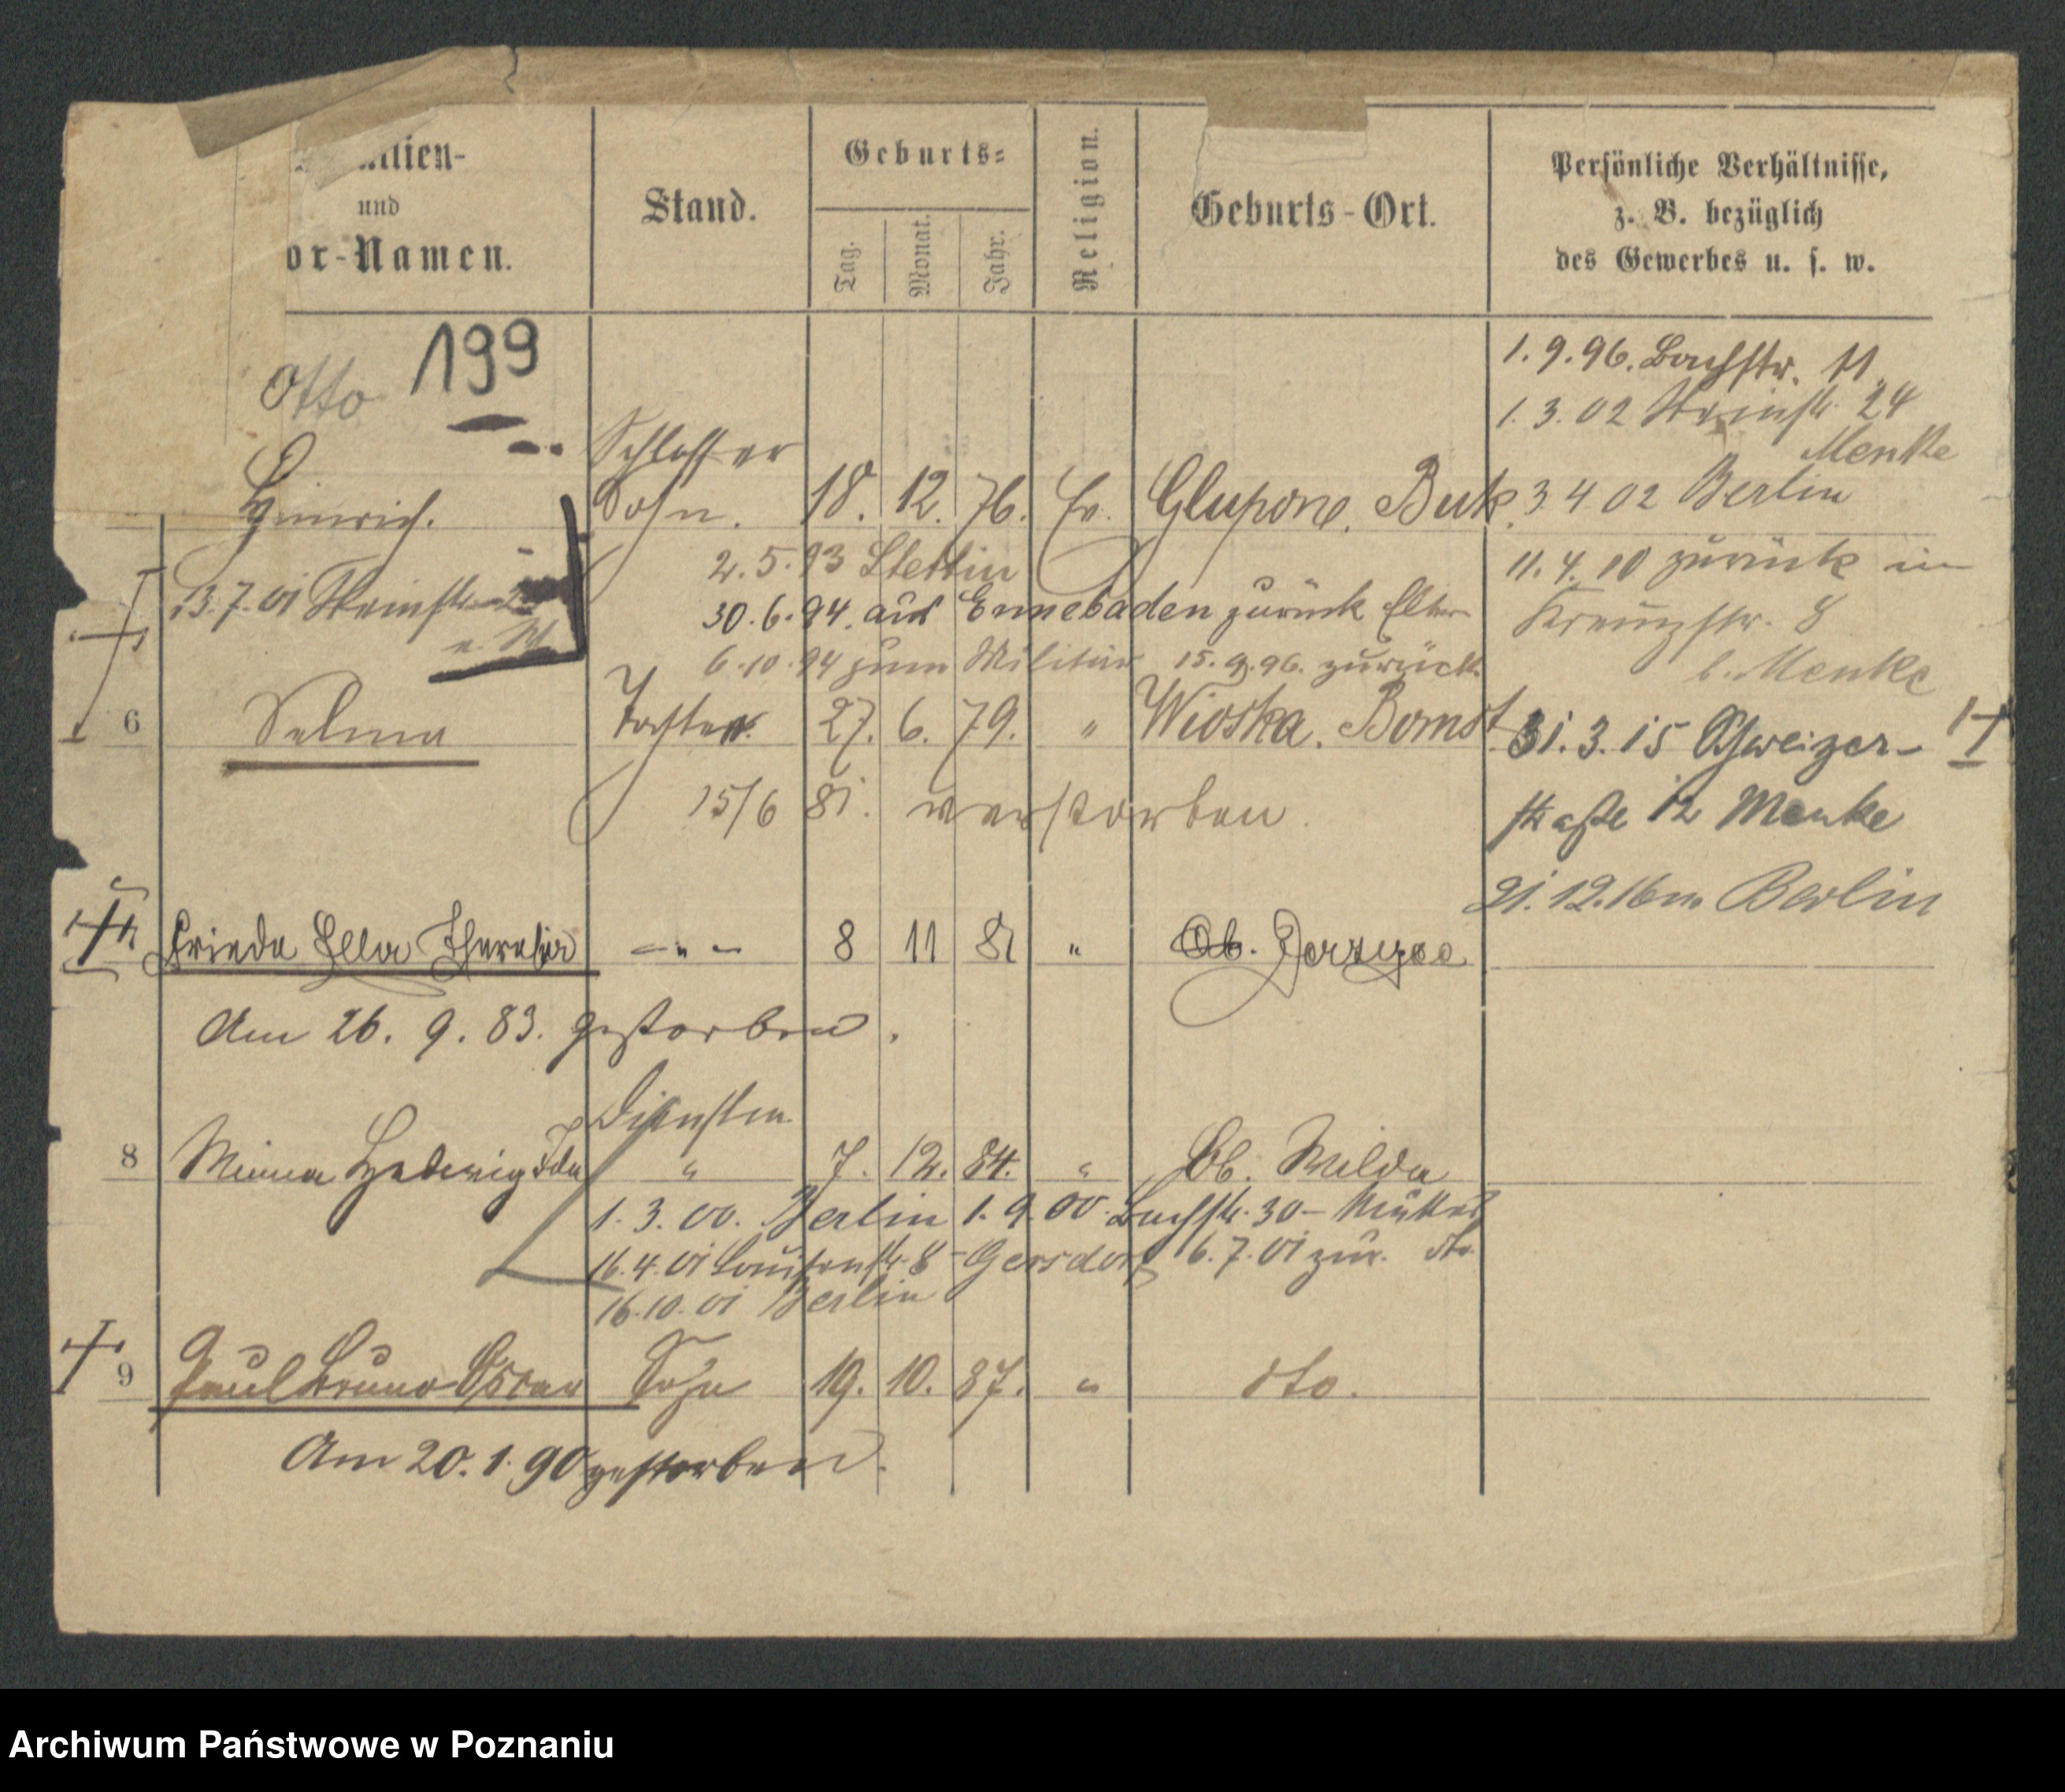 ilien-
und
or-Namen.
Stand.
Geburts-
Tag.
Monat.
Jahr.
Religion.
Geburts-Ort.
Persönliche Verhältnisse,
z. B. bezüglich
des Gewerbes u. s. w.
199
Otto
1.9.96. Bachstr. 11
1.3.02 Steinstr. 24
Menke
Schlosser
Heinrich. Sohn. 18. 12. 76. Ev. Glupone, Buk. 3 4 02 Berlin
2.5.93 Stettin
11.4.10 zurück in
13.7.01 Steinstr.
30.6.94. aus zurück Eltern
Kreuzstr. 8
6.10.94 zum Militär 15.9.96. zurück.
b. Menke
6 Selma Tochter. 27. 6. 79. " Wioska, Bomst
31.3.15 Schweizer-
15/6 81. verstorben.
straße 12 Menke
21.12.16 n. Berlin
Frieda Ella Theresia - " - 8 11 81 " Ob. Gerzyce
Am 26. 9. 83. gestorben.
Dienstm.
8 Minna Hedwig Ida " 7. 12. 84. " Ob. Wilda
1.3.00. Berlin 1.9.00. Bachstr. 30 - Mutter
16.4.01 Louisenstr. 8 - Gersdorf 6.7.01 zur. dto.
16.10.01 Berlin
9 Paul Bruno Oscar Sohn 19. 10. 87. " dto.
Am 20.1.90 gestorben.
Archiwum Państwowe w Poznaniu